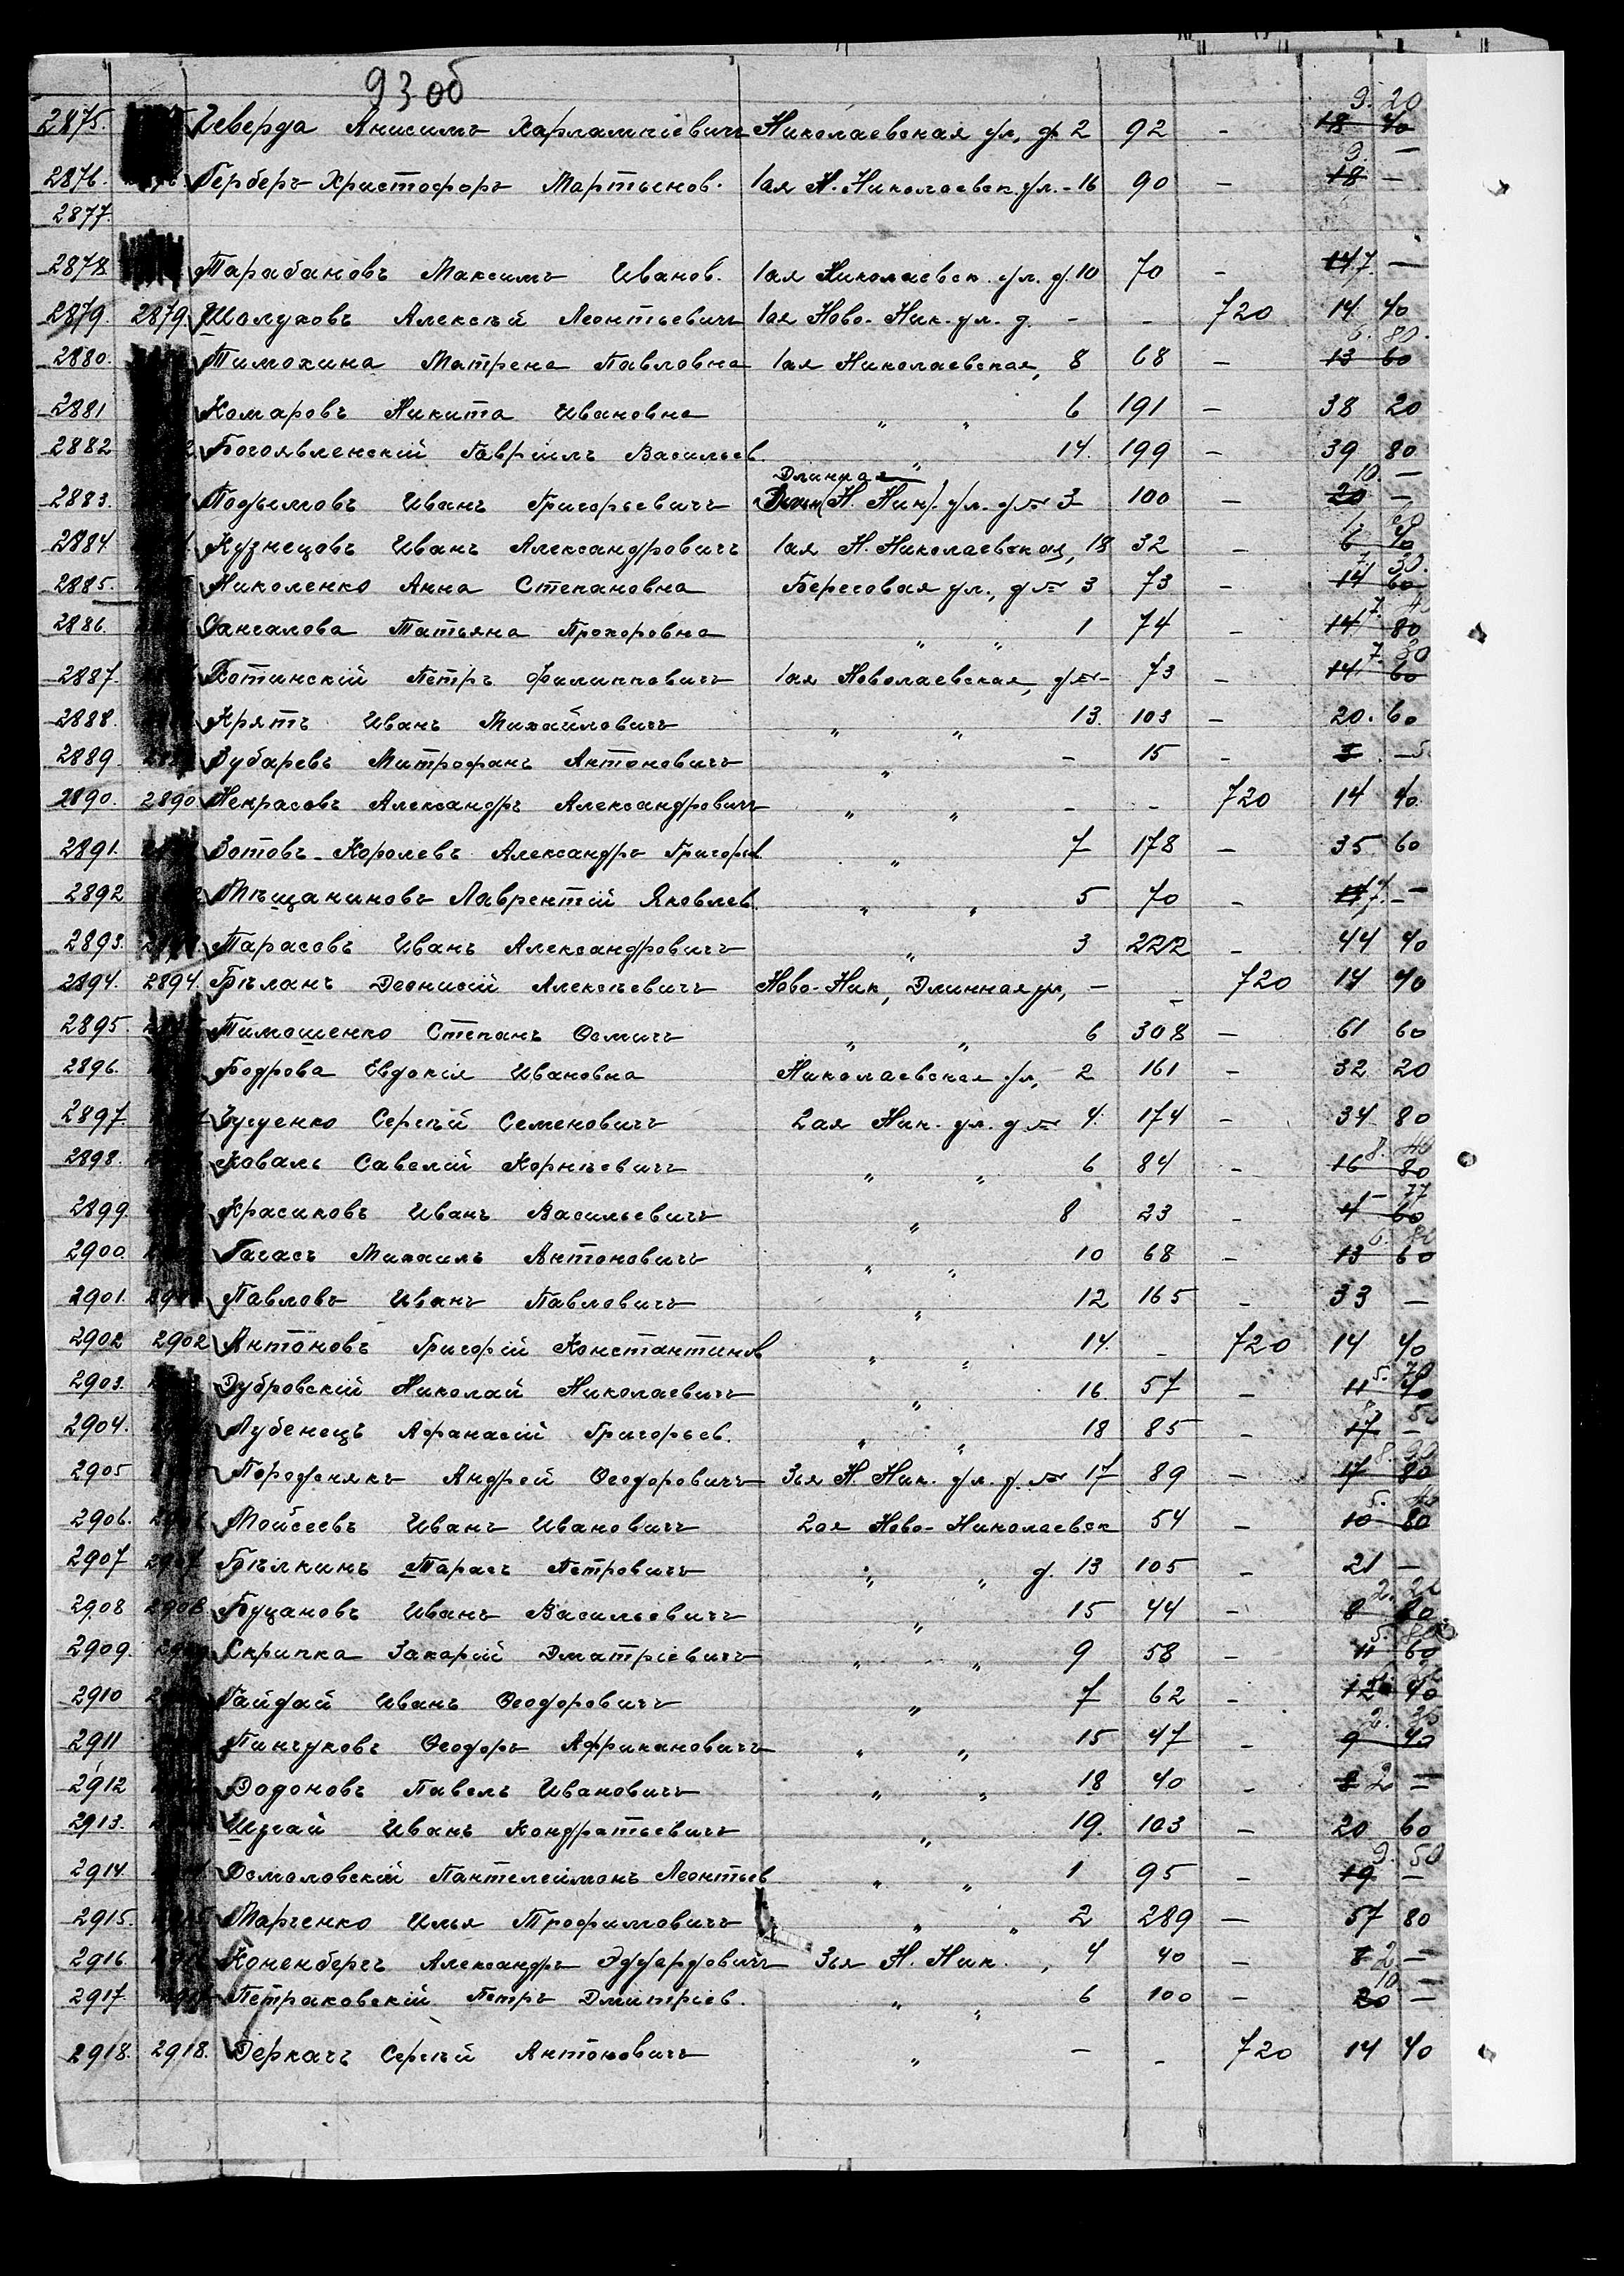 93 об
9. 20
2875. Чеверда Анисимъ Харлампіевичъ Николаевская ул. д. 2 92 - 18 40
9. -
2876. Герберъ Христофоръ Мартынов. 1ая Н. Николаевск. ул. - 16 90 - 18 -
2877.
2878 Тарабановъ Максимъ Иванов. 1ая Николаевск. ул. д. 10 70 - 14 7. -
2879. 2879. Шолуховъ Алексѣй Леонтьевичъ 1ая Ново-Ник. ул. д. - - 720 14 40
6. 80.
2880. Тимохина Матрена Павловна 1ая Николаевская, 8 68 - 13 60
2881 Комаровъ Никита Ивановна " " 6 191 - 38 20
2882 Богоявленскій Гавріилъ Васильев. " 14. 199 - 39 80
Длинная 10. -
2883. Подымовъ Иванъ Григорьевичъ (Н. Ник). ул. д № 3 100 - 20 -
2884 Кузнецовъ Иванъ Александровичъ 1ая Н. Николаевская, 18 32 - 6 40
7. 30.
2885. Николенко Анна Степановна Береговая ул., д № 3 73 - 14 60
7. 4
2886. Сансалова Татьяна Прохоровна " " 1 74 - 14 80
7. 30
2887. Хотинскій Петръ Филипповичъ 1ая Новолаевская, д № - 73 - 14 60
2888. Крятъ Иванъ Михайловичъ " " 13. 103 - 20. 60
2889 Зубаревъ Митрофанъ Антоновичъ " - 15 - 3 -
2890. 2890 Некрасовъ Александръ Александровичъ " " - - 720 14 40
2891. Зотовъ-Королевъ Александръ Григорьев. " 7 178 - 35 60
2892 Мѣщаниновъ Лаврентій Яковлев. " " 5 70 - 14 7. -
2893. Тарасовъ Иванъ Александровичъ " 3 222 - 44 40
2894. 2894. Бѣланъ Деонисій Алексѣевичъ Ново-Ник, Длинная ул, - - 720 14 40
2895 Тимошенко Степанъ Ѳомичъ " " 6 308 - 61 60
2896. Бодрова Евдокія Ивановна Николаевская ул, 2 161 - 32 20
2897. Гусенко Сергѣй Семеновичъ 2ая Ник. ул. д № 4. 174 - 34 80
8. 40
2898. Коваль Савелій Корнѣевичъ " " 6 84 - 16 80
77
2899. Красиковъ Иванъ Васильевичъ " 8 23 - 4 60
6. 80
2900. Гагасъ Михаилъ Антоновичъ " " 10 68 - 13 60
2901. Павловъ Иванъ Павловичъ " 12 165 - 33 -
2902 2902 Антоновъ Григорій Константинов " " 14. - 720 14 40
5. 70
2903. Дубровскій Николай Николаевичъ " 16. 57 - 11 40
8. 50
2904. Лубенецъ Афанасій Григорьев. " " 18 85 - 17 -
8. 90
2905 Породнякъ Андрей Ѳеодоровичъ 3ья Н. Ник. ул. д. № 17 89 - 17 80
5. 40
2906. Мойсеевъ Иванъ Ивановичъ 2ая Ново-Николаевск 54 - 10 80
2907 2907 Бѣлкинъ Тарасъ Петровичъ " " д. 13 105 - 21 -
2. 20
2908 2908 Буцановъ Иванъ Васильевичъ " 15 44 - 8 80
5. 80
2909. Скрипка Захарій Дматріевичъ " " 9 58 - 11 60
2910 Гайдай Иванъ Ѳеодоровичъ " 7 62 - 12 40
2. 35
2911 Пинчуковъ Ѳеодоръ Африкановичъ " " 15 47 - 9 40
2912 Водоновъ Павелъ Ивановичъ " " 18 40 - 8 2 -
2913. Шугай Иванъ Кондратьевичъ " 19. 103 - 20 60
9. 50
2914. Осмоловскій Пантелеймонъ Леонтьев " " 1 95 - 19 -
2915. Марченко Илья Трофимовичъ " " 2 289 - 57 80
2916 Коненбергъ Александръ Эдуардовичъ 3ья Н. Ник. , 4 40 - 8 2 -
10 -
2917 Петраковскій Петръ Дмитріев. " " 6 100 - 20 -
2918. 2918. Деркачъ Сергѣй Антоновичъ " - - 720 14 40